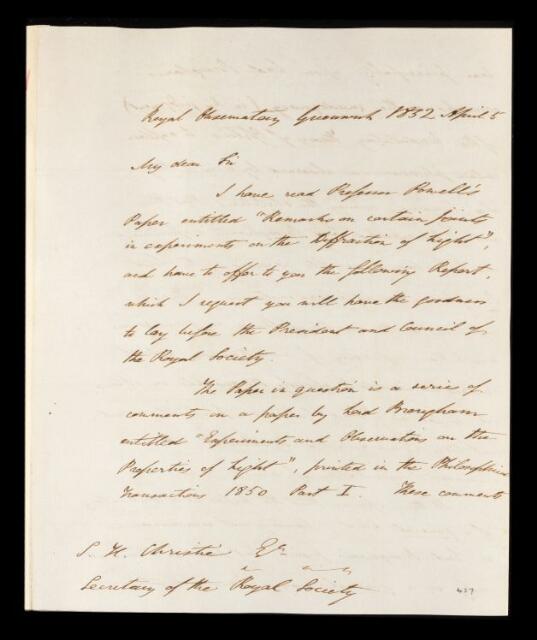 Royal Observatory Greenwich 1852 April 5
My dear Sir
I have read Professor Powell's
Paper entitled "Remarks on certain points
in experiments on the Diffraction of Light",
and have to offer to you the following Report,
which I request you will have the goodness
to lay before the President and Council of
the Royal Society.
The Paper in question is a series of
comments on a paper by Lord Brougham
entitled "Experiments and Observations on the
Properties of Light", printed in the Philosophical
Transactions 1850 Part I. These comments
S. H. Christie Esq
Secretary of the Royal Society
437